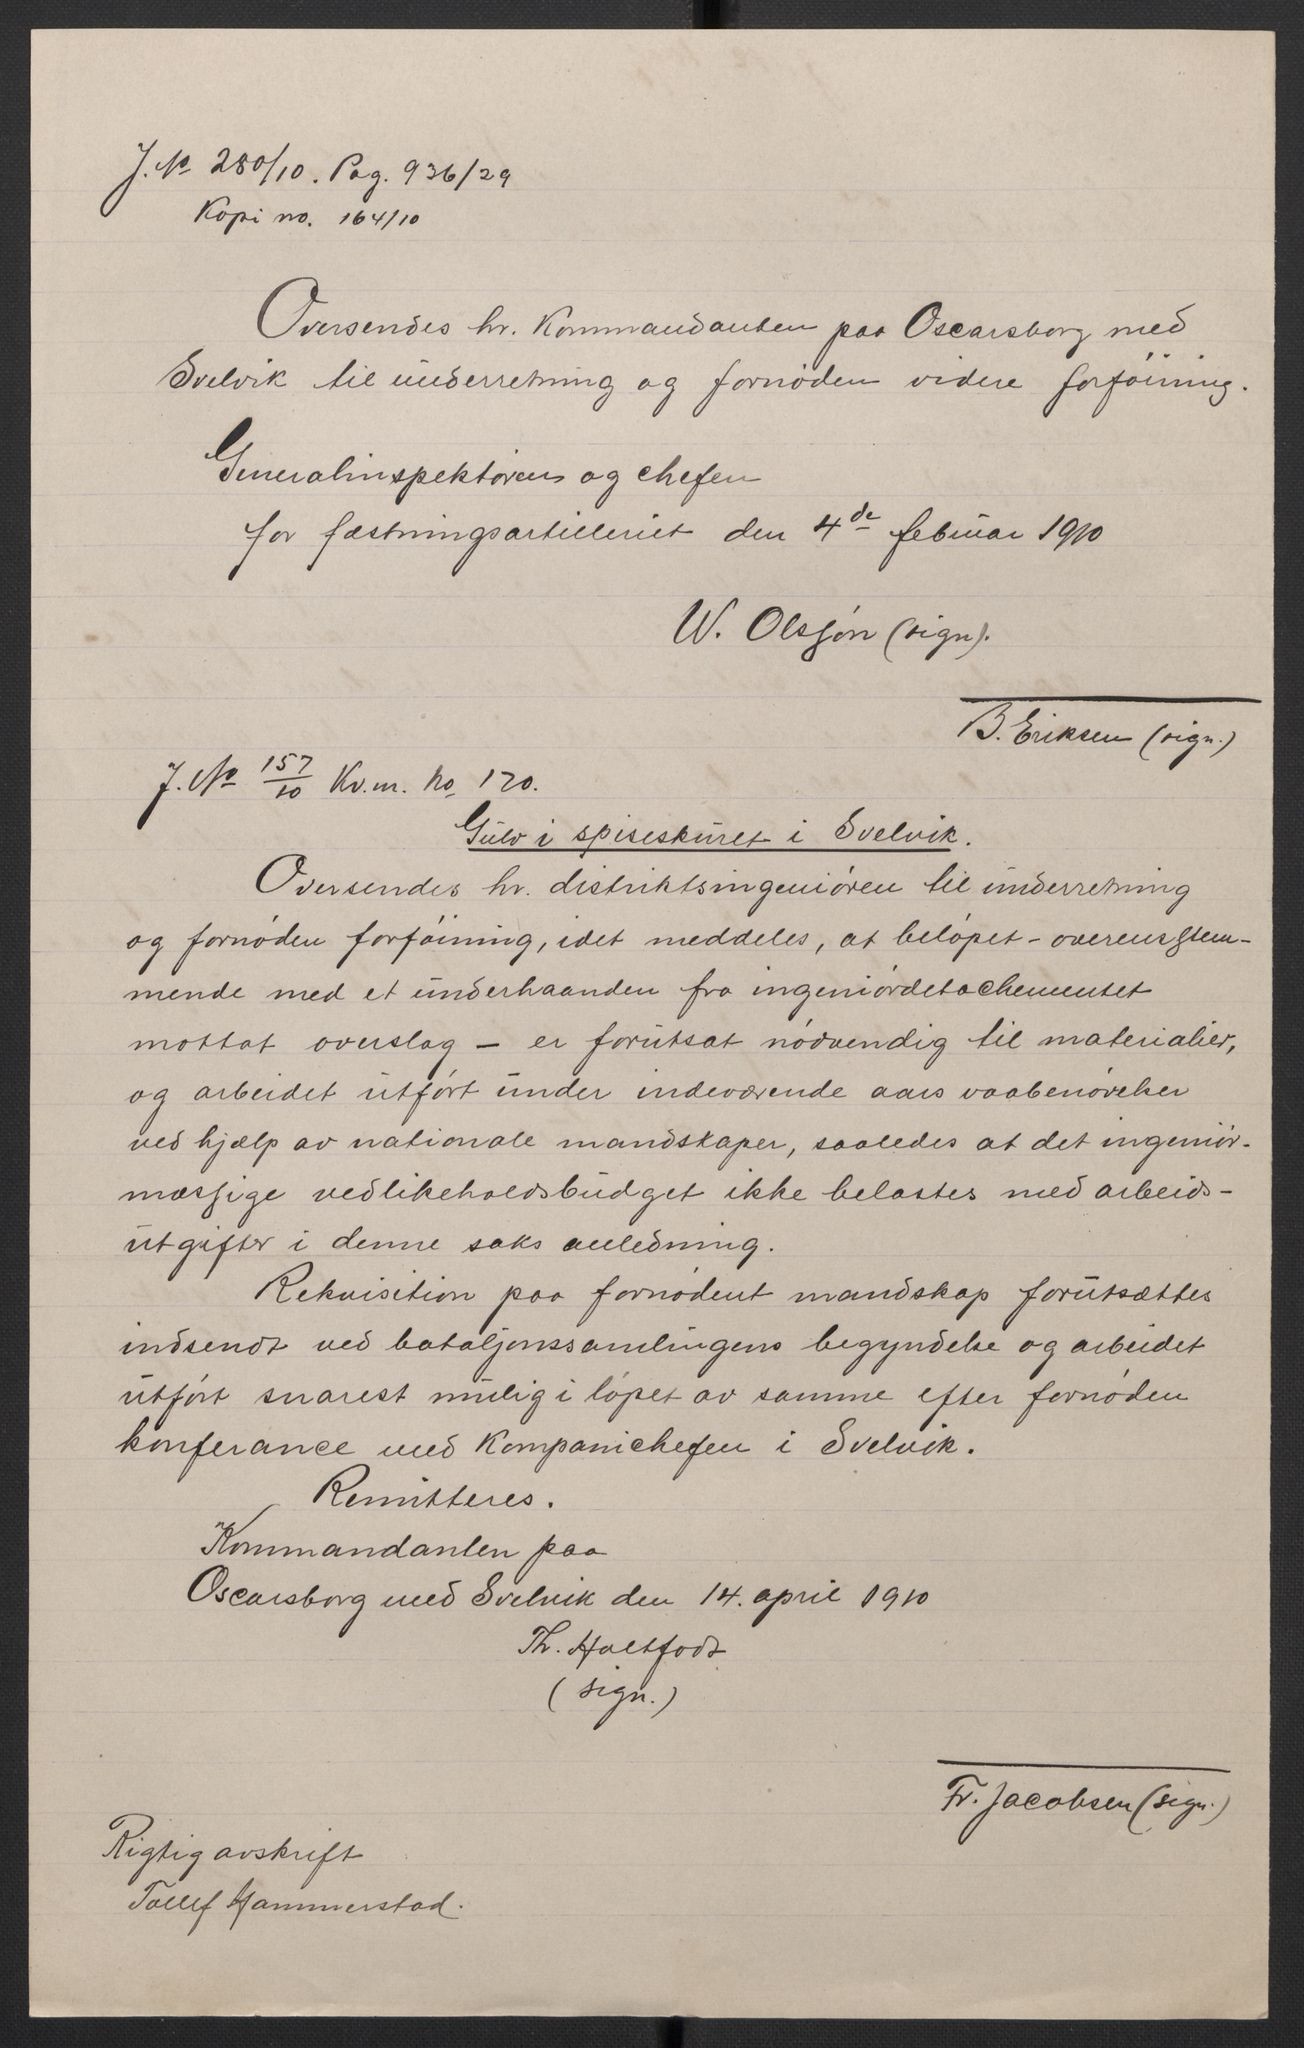 J. No 280/10. Pag. 936/29
Kopi no. 164/10
Oversendes hr. Kommandanten paa Oscarsborg med
Svelvik til underretning og fornöden videre forföining.
Generalinspektören og chefen
for fæstningsartilleriet den 4de februar 1910
W. Olssön (sign).
B. Eriksen (sign.)
J. No 157/10 Kv.m. No 170.
Gulv i spiseskuret i Svelvik.
Oversendes hr. distriktsingeniören til underretning
og fornöden forföining, idet meddeles, at belöpet - overensstem-
mende med et underhaanden fra ingeniördetachementet
mottat overslag - er forutsat nödvendig til materialier,
og arbeidet utfört under indeværende aars vaabenövelser
ved hjælp av nationale mandskaper, saaledes at det ingeniör-
mæssige vedlikeholdsbudget ikke belastes med arbeids-
utgifter i denne saks anledning.
Rekvisition paa fornödent mandskap forutsættes
indsendt ved bataljonssamlingens begyndelse og arbeidet
utfört snarest mulig i löpet av samme efter fornöden
konferance med Kompanichefen i Svelvik.
Remitteres.
Kommandanten paa
Oscarsborg med Svelvik den 14. april 1910
Th. Holtfodt
(sign.)
Fr. Jacobsen (sign.)
Rigtig avskrift
Tollef Hammerstad.